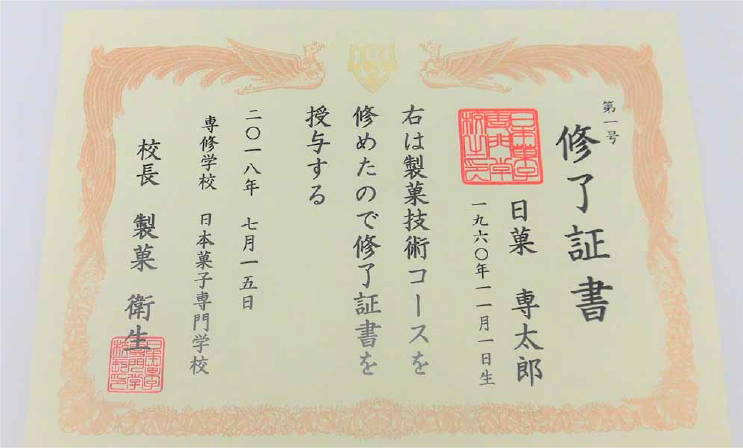 第一号
修了証書
日菓 専太郎
一九六〇年一一月一日生
右は製菓技術コースを
修めたので修了証書を
授与する
二〇一八年 七月一五日
専修学校 日本菓子専門学校
校長 製菓 衛生